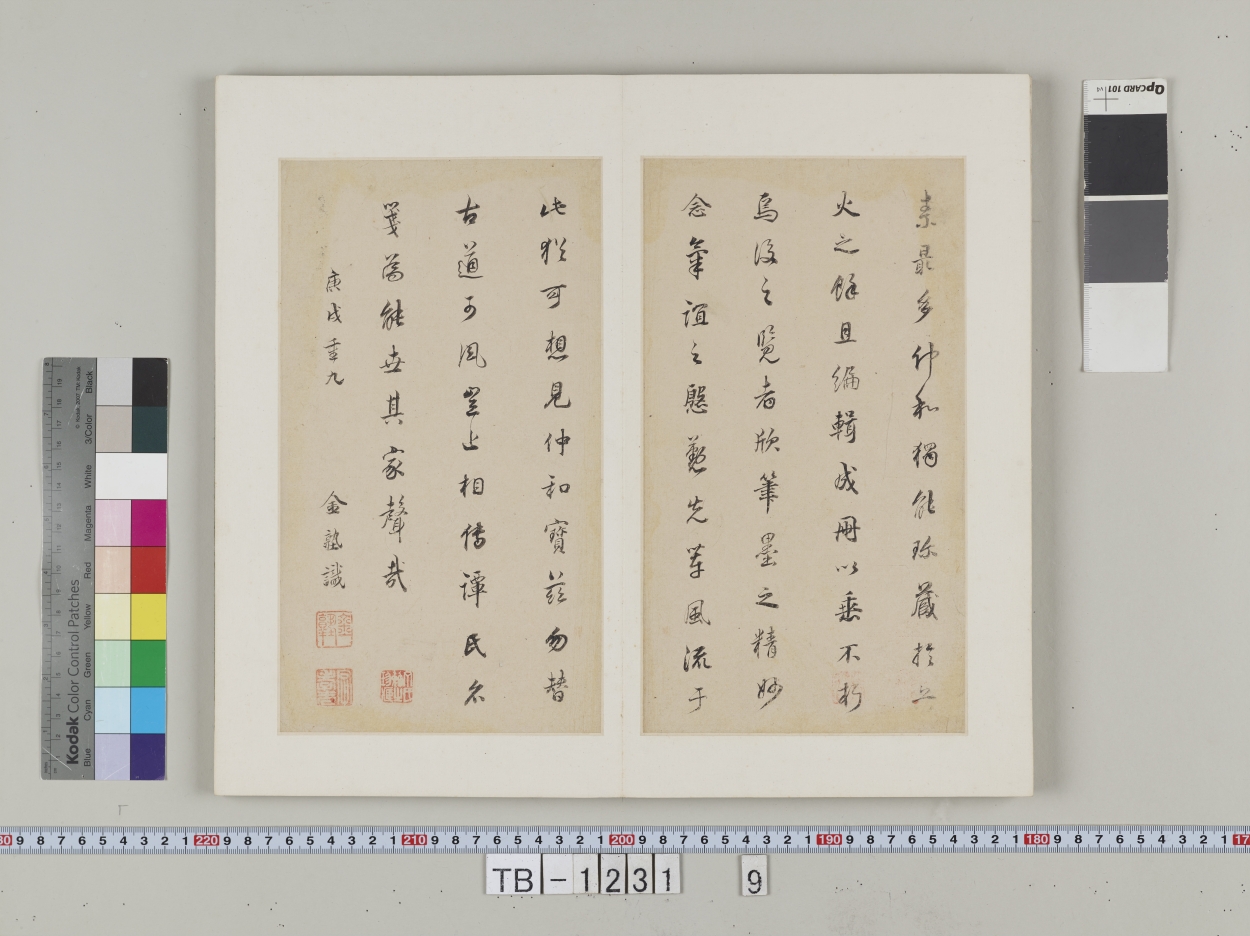 素最多仲和獨能珍藏於兵
火之餘且編輯成冊以垂不朽
焉後之覽者欣筆墨之精妙
念氣誼之慇懃先輩風流于
此猶可想見仲和寶茲勿替
古道可風豈止相傳譚氏名
箋為能世其家聲哉
庚戌重九
金 識
Kodak Color Control Patches
Blue Cyan Green Yellow Red Magenta White 3/Color Black
QpCARD 101
TB-1231 9